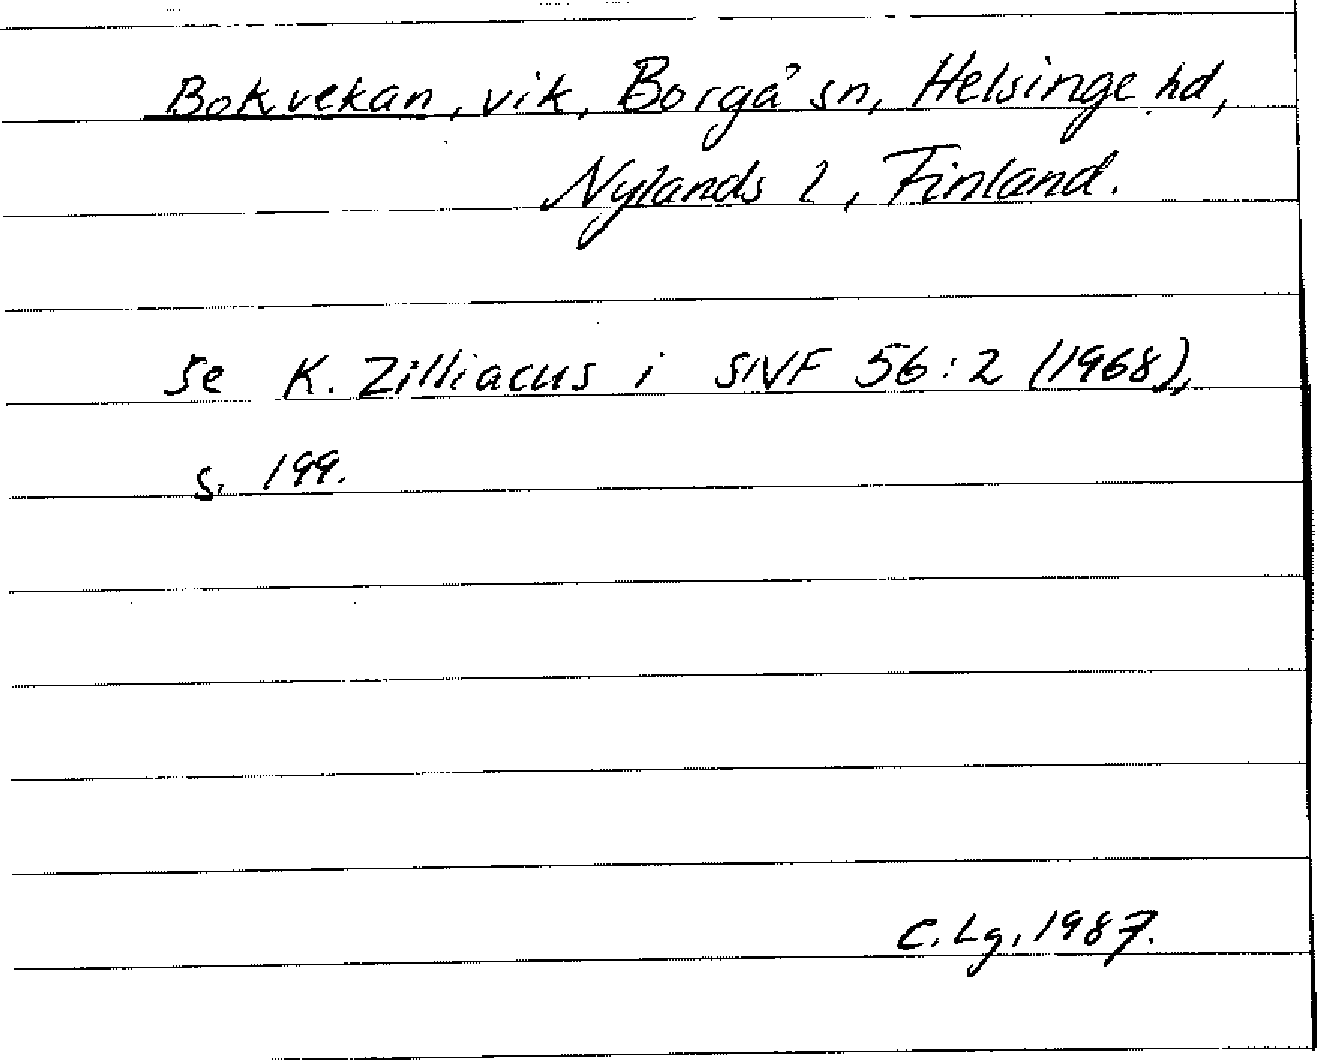 Bokvekan, vik, Borgå sn, Helsinge hd,
Nylands l, Finland.
Se K. Zilliacus i SNF 56:2 (1968),
s. 199.
C. Lg. 1987.